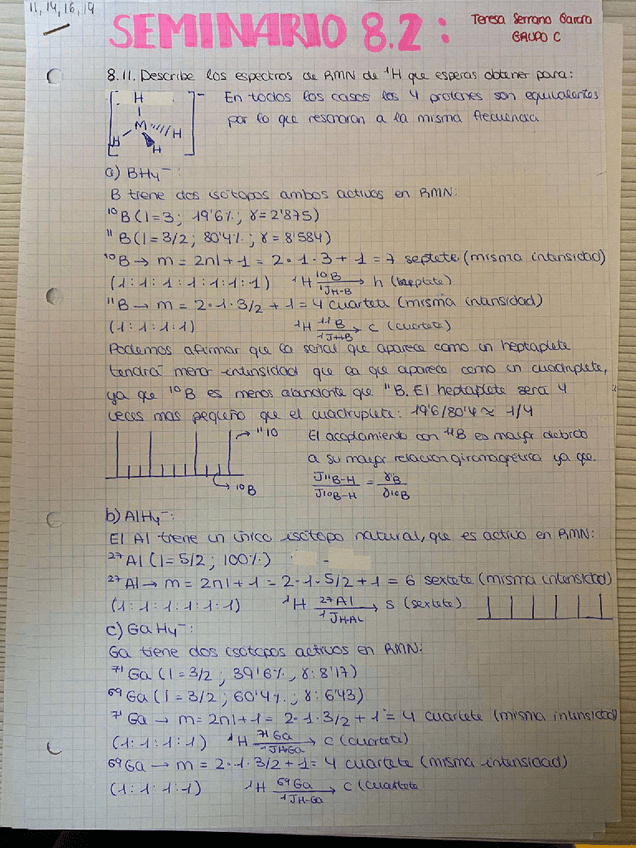 11, 14, 16, 19
SEMINARIO 8.2:
Teresa Serrano García
GRUPO C
8.11. Describe los espectros de RMN de ¹H que esperas obtener para:
[H M H H H]⁻
En todos los casos los 4 protones son equivalentes
por lo que resonaran a la misma frecuencia
a) BH₄⁻:
B tiene dos isótopos ambos activos en RMN:
¹⁰B (I=3; 19'6%; γ=2'875)
¹¹B (I=3/2; 80'4%; γ=8'584)
¹⁰B → m = 2nI+1 = 2·1·3+1 = 7 septete (misma intensidad)
(1:1:1:1:1:1:1) ¹H ¹⁰B/¹JH-B → h (heptaplete)
¹¹B → m = 2·1·3/2 + 1 = 4 cuarteta (misma intensidad)
(1:1:1:1) ¹H ¹¹B/¹JH-B → c (cuartete)
Podemos afirmar que la señal que aparece como un heptaplete
tendrá menor intensidad que la que aparece como un cuadruplete,
ya que ¹⁰B es menos abundante que ¹¹B. El heptaplete será 4
veces mas pequeño que el cuadruplete: 19'6/80'4 ≈ 1/4
¹¹B
¹⁰B
El acoplamiento con ¹¹B es mayor debido
a su mayor relación giromagnética ya que
J¹¹B-H/J¹⁰B-H = γ¹¹B/γ¹⁰B
b) AlH₄⁻:
El Al tiene un único isótopo natural, que es activo en RMN:
²⁷Al (I=5/2; 100%)
²⁷Al → m = 2nI+1 = 2·1·5/2 + 1 = 6 sextete (misma intensidad)
(1:1:1:1:1:1) ¹H ²⁷Al/¹JH-Al → s (sextete)
c) GaH₄⁻:
Ga tiene dos isótopos activos en RMN:
⁷¹Ga (I=3/2; 39'6%; γ: 8'17)
⁶⁹Ga (I=3/2; 60'4%; γ: 6'43)
⁷¹Ga → m = 2nI+1 = 2·1·3/2 + 1 = 4 cuartete (misma intensidad)
(1:1:1:1) ¹H ⁷¹Ga/¹JH-Ga → c (cuartete)
⁶⁹Ga → m = 2·1·3/2 + 1 = 4 cuartete (misma intensidad)
(1:1:1:1) ¹H ⁶⁹Ga/¹JH-Ga → c (cuartete